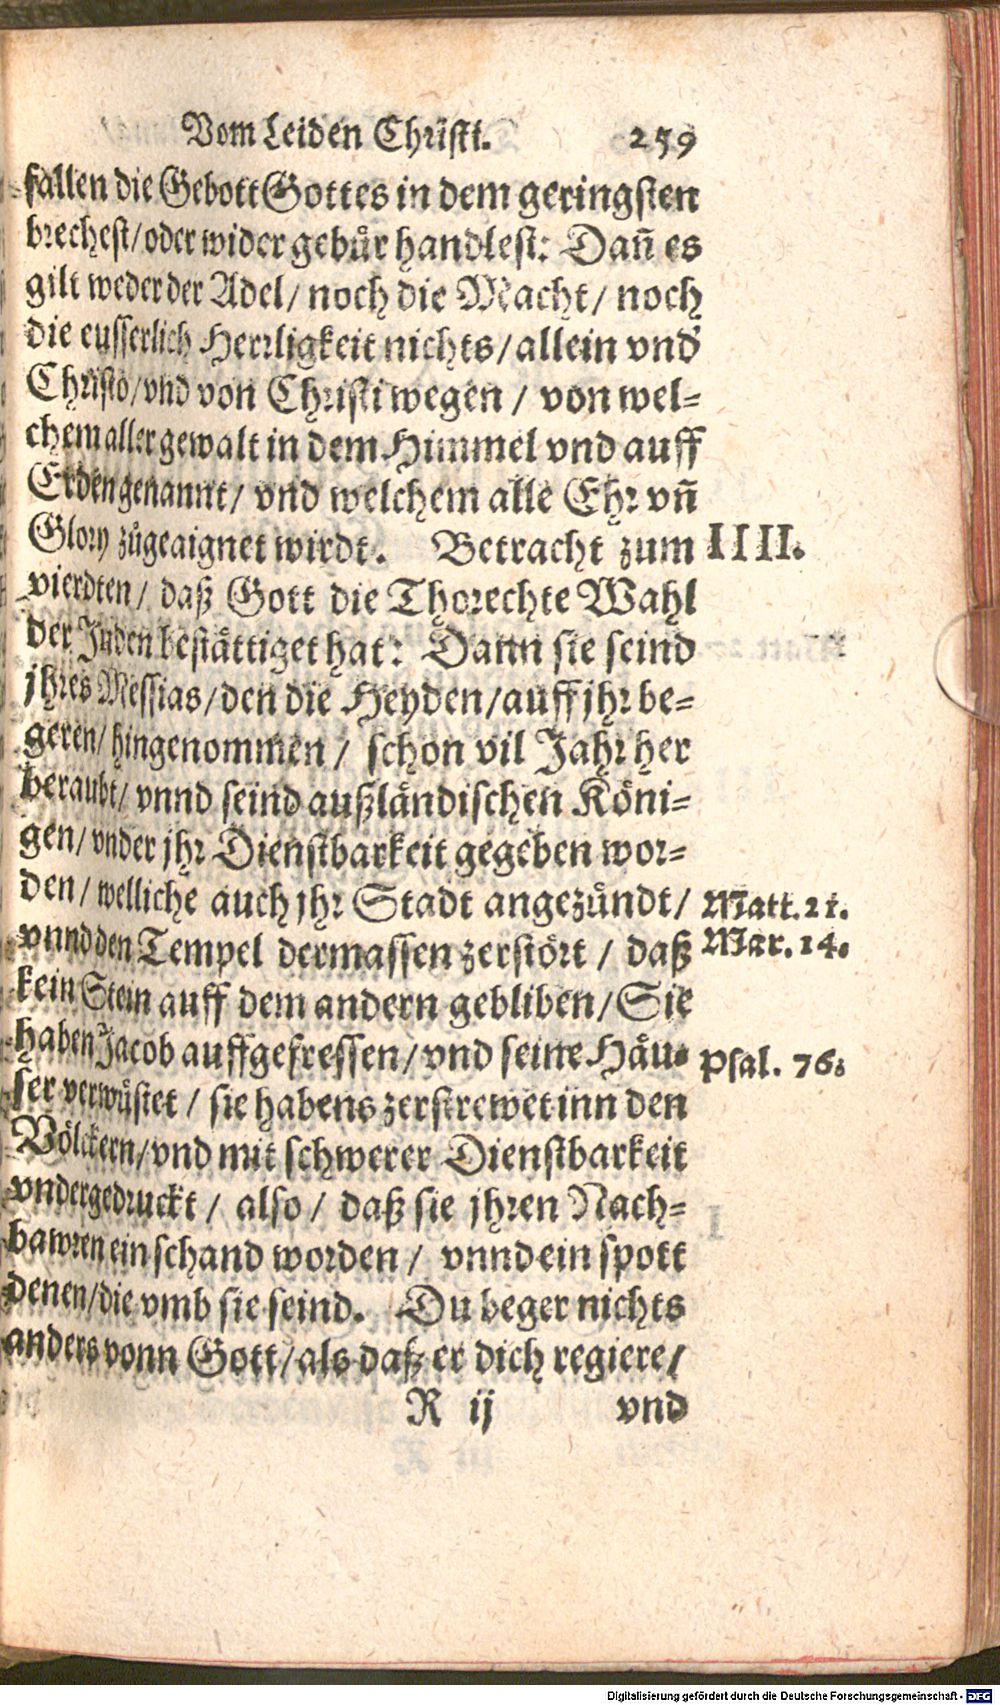 Vom Leiden Christi. 259
fallen die Gebott Gottes in dem geringsten
brechest/ oder wider gebůr handlest: Dañ es
gilt weder der Adel/ noch die Macht/ noch
die eusserlich Herrligkeit nichts/ allein vnd'
Christo/ vnd von Christi wegen / von wel-
chem aller gewalt in dem Himmel vnd auff
Erden genannt/ vnd welchem alle Ehr vñ
Glory zůgeaignet wirdt. Betracht zum IIII.
vierdten / daß Gott die Thorechte Wahl
der Juden bestättiget hat: Dann sie seind
jhres Messias/ den die Heyden/ auff jhr be-
geren/ hingenommen / schon vil Jahr her
beraubt/ vnnd seind außländischen Köni-
gen/ vnder jhr Dienstbarkeit gegeben wor-
den/ welliche auch jhr Stadt angezündt/ Matt. 21.
vnnd den Tempel dermassen zerstört / daß Mar. 14.
kein Stein auff dem andern gebliben/ Sie
haben Jacob auffgefressen/ vnd seine Häu- Psal. 76.
ser verwüstet / sie habens zerstrewet inn den
Völckern/ vnd mit schwerer Dienstbarkeit
vndergedruckt / also / daß sie jhren Nach-
bawren ein schand worden / vnnd ein spott
denen/ die vmb sie seind. Du beger nichts
anders vonn Gott/ als daß er dich regiere/
R ij vnd
Digitalisierung gefördert durch die Deutsche Forschungsgemeinschaft - DFG